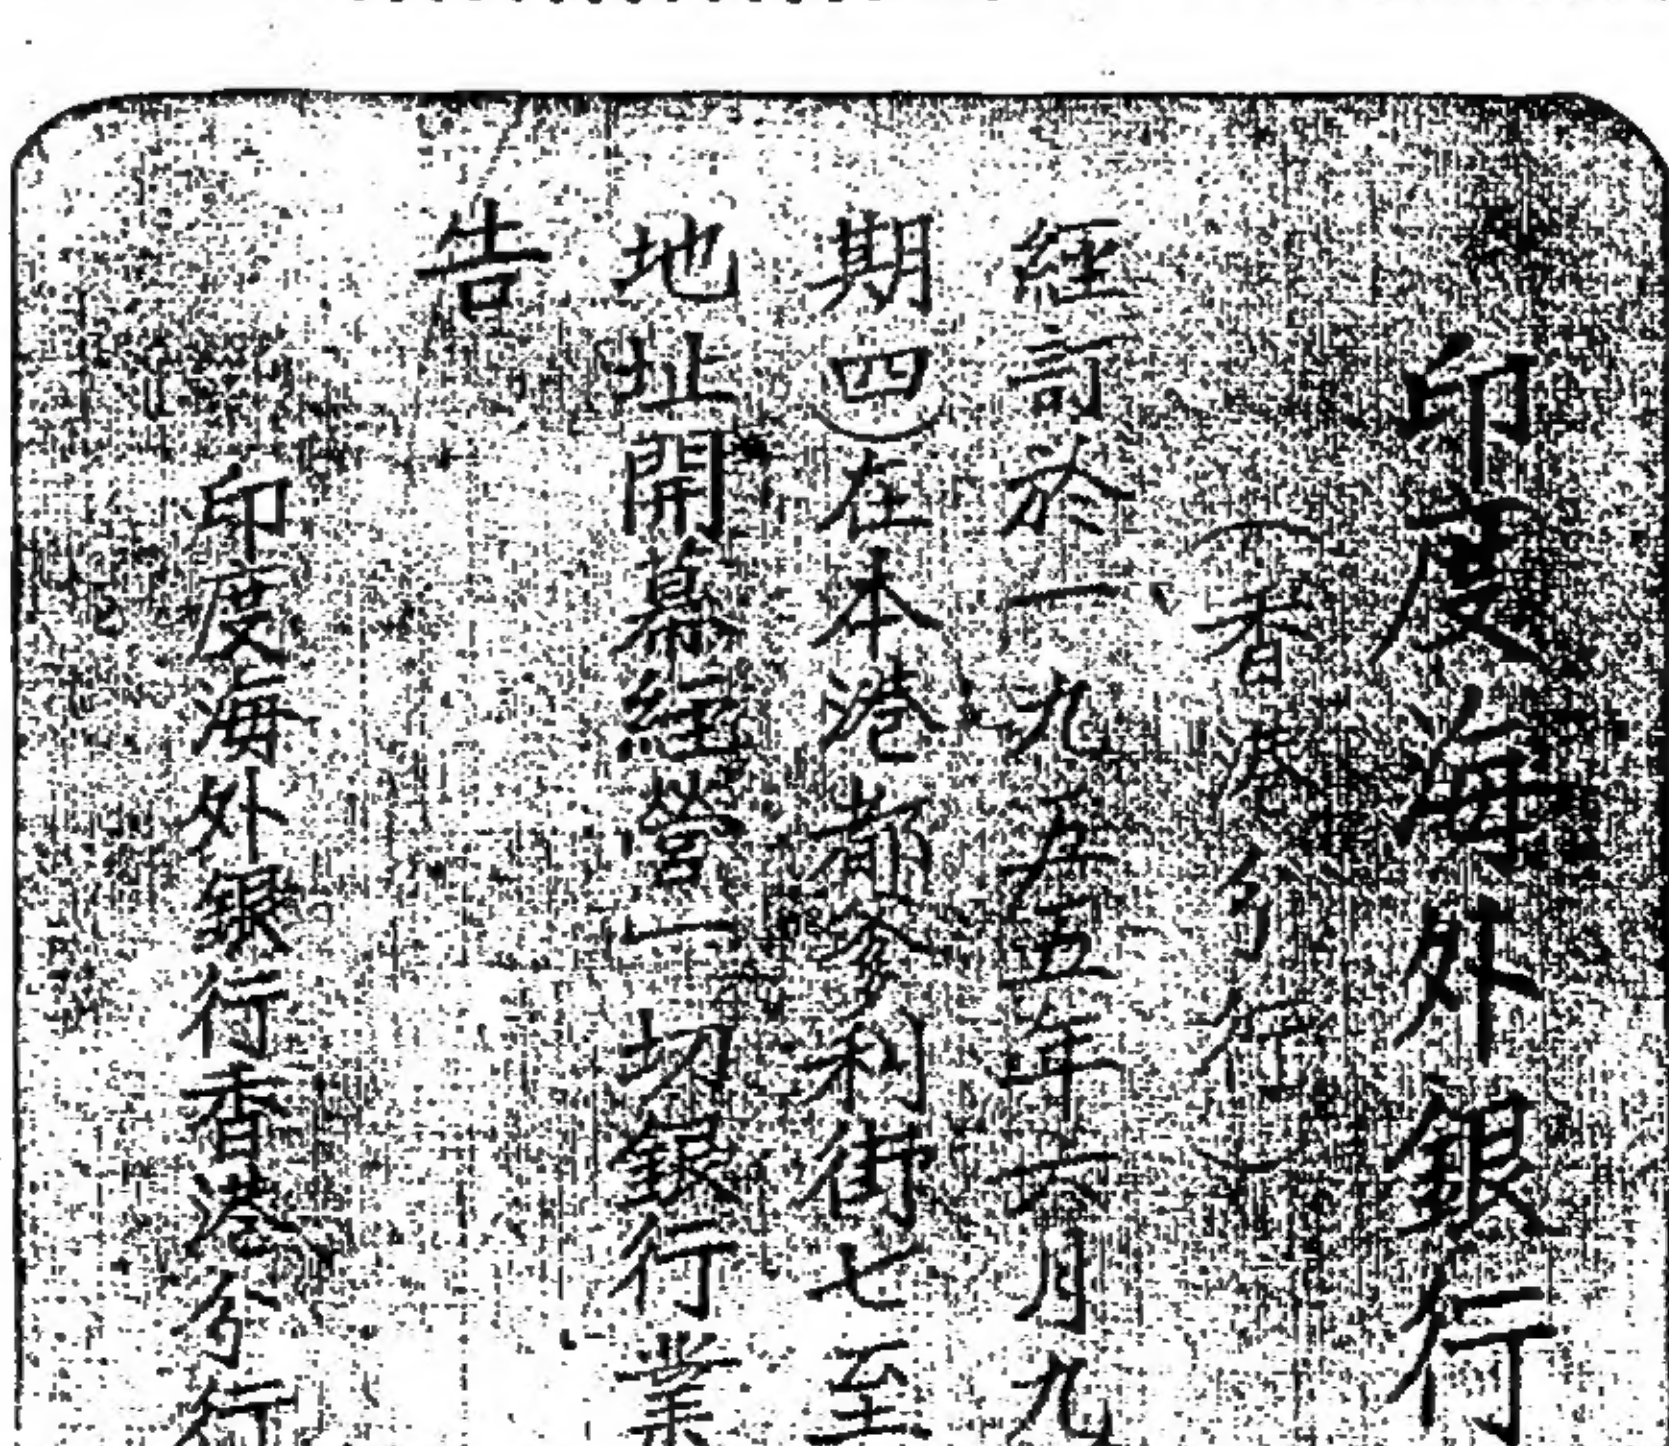 印度海外銀行
(香港分行)
經訂於一九五五年六月九
期四)在本港都爹利街七至
地址開幕經營一切銀行業
告
印度海外銀行香港分行